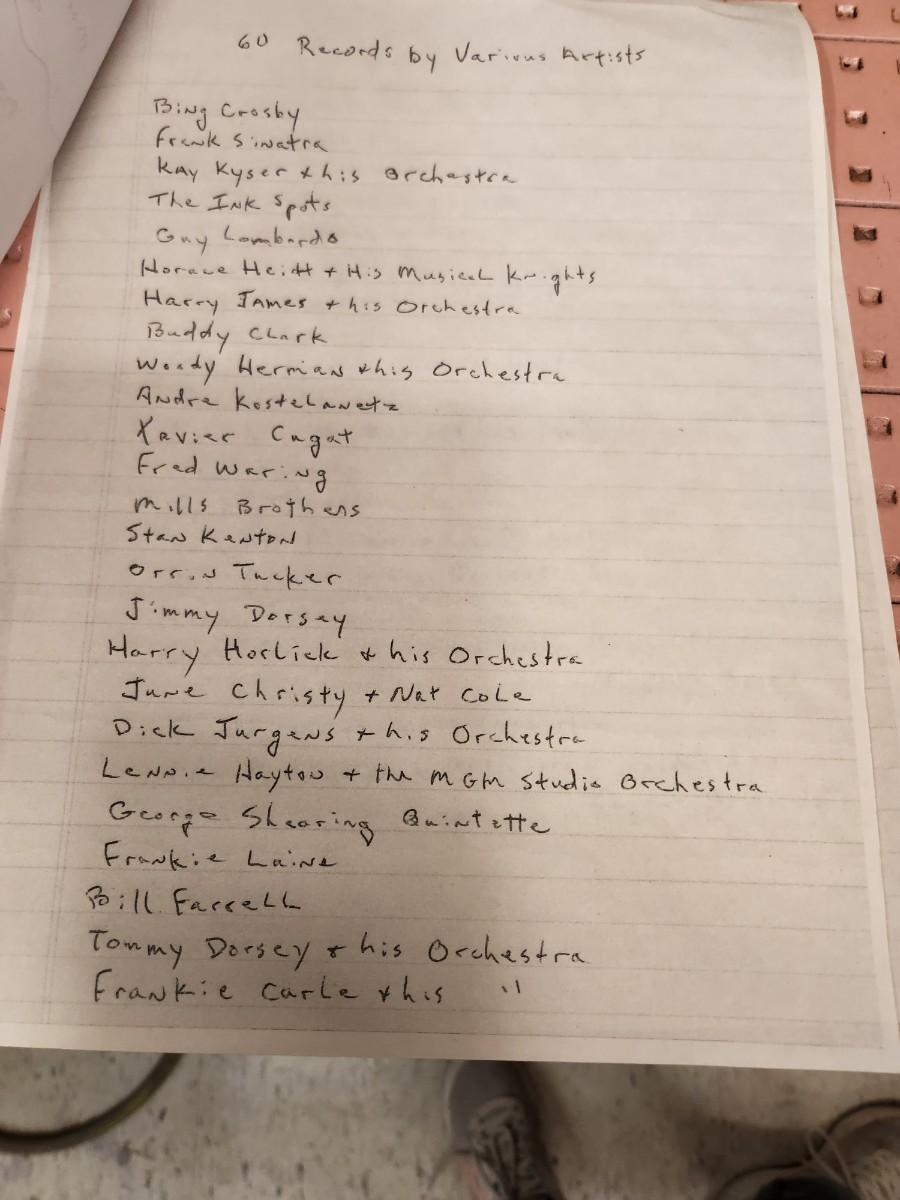 60 Records by Various Artists
Bing Crosby
Frank Sinatra
Kay Kyser & his Orchestra
The Ink Spots
Guy Lombardo
Horace Heidt + His Musical Knights
Harry James + his Orchestra
Buddy Clark
Woody Herman & his Orchestra
Andre Kostelanetz
Xavier Cugat
Fred Waring
Mills Brothers
Stan Kenton
Orrin Tucker
Jimmy Dorsey
Harry Horlick & his Orchestra
June Christy + Nat Cole
Dick Jurgens + his Orchestra
Lennie Hayton + the MGM Studio Orchestra
George Shearing Quintette
Frankie Laine
Bill Farrell
Tommy Dorsey & his Orchestra
Frankie Carle & his "